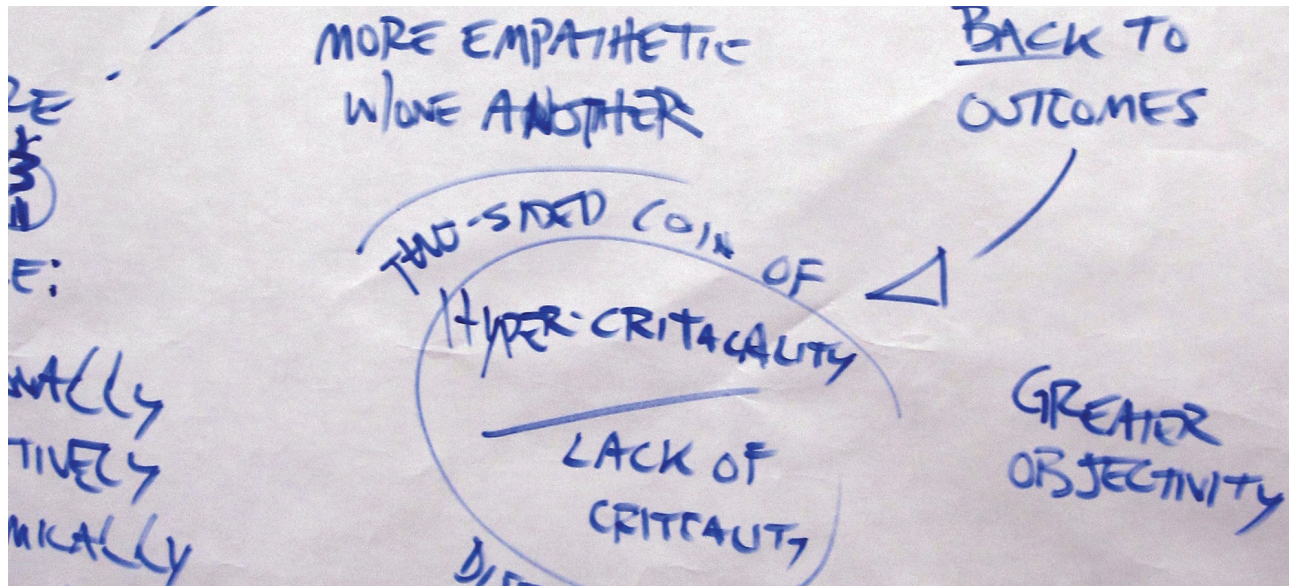 MORE EMPATHETIC
W/ONE ANOTHER
BACK TO
OUTCOMES
TWO-SIDED COIN OF
HYPER-CRITACALITY
LACK OF
CRITCALITY
GREATER
OBJECTIVITY
E:
NALLY
TIVELY
MICALLY